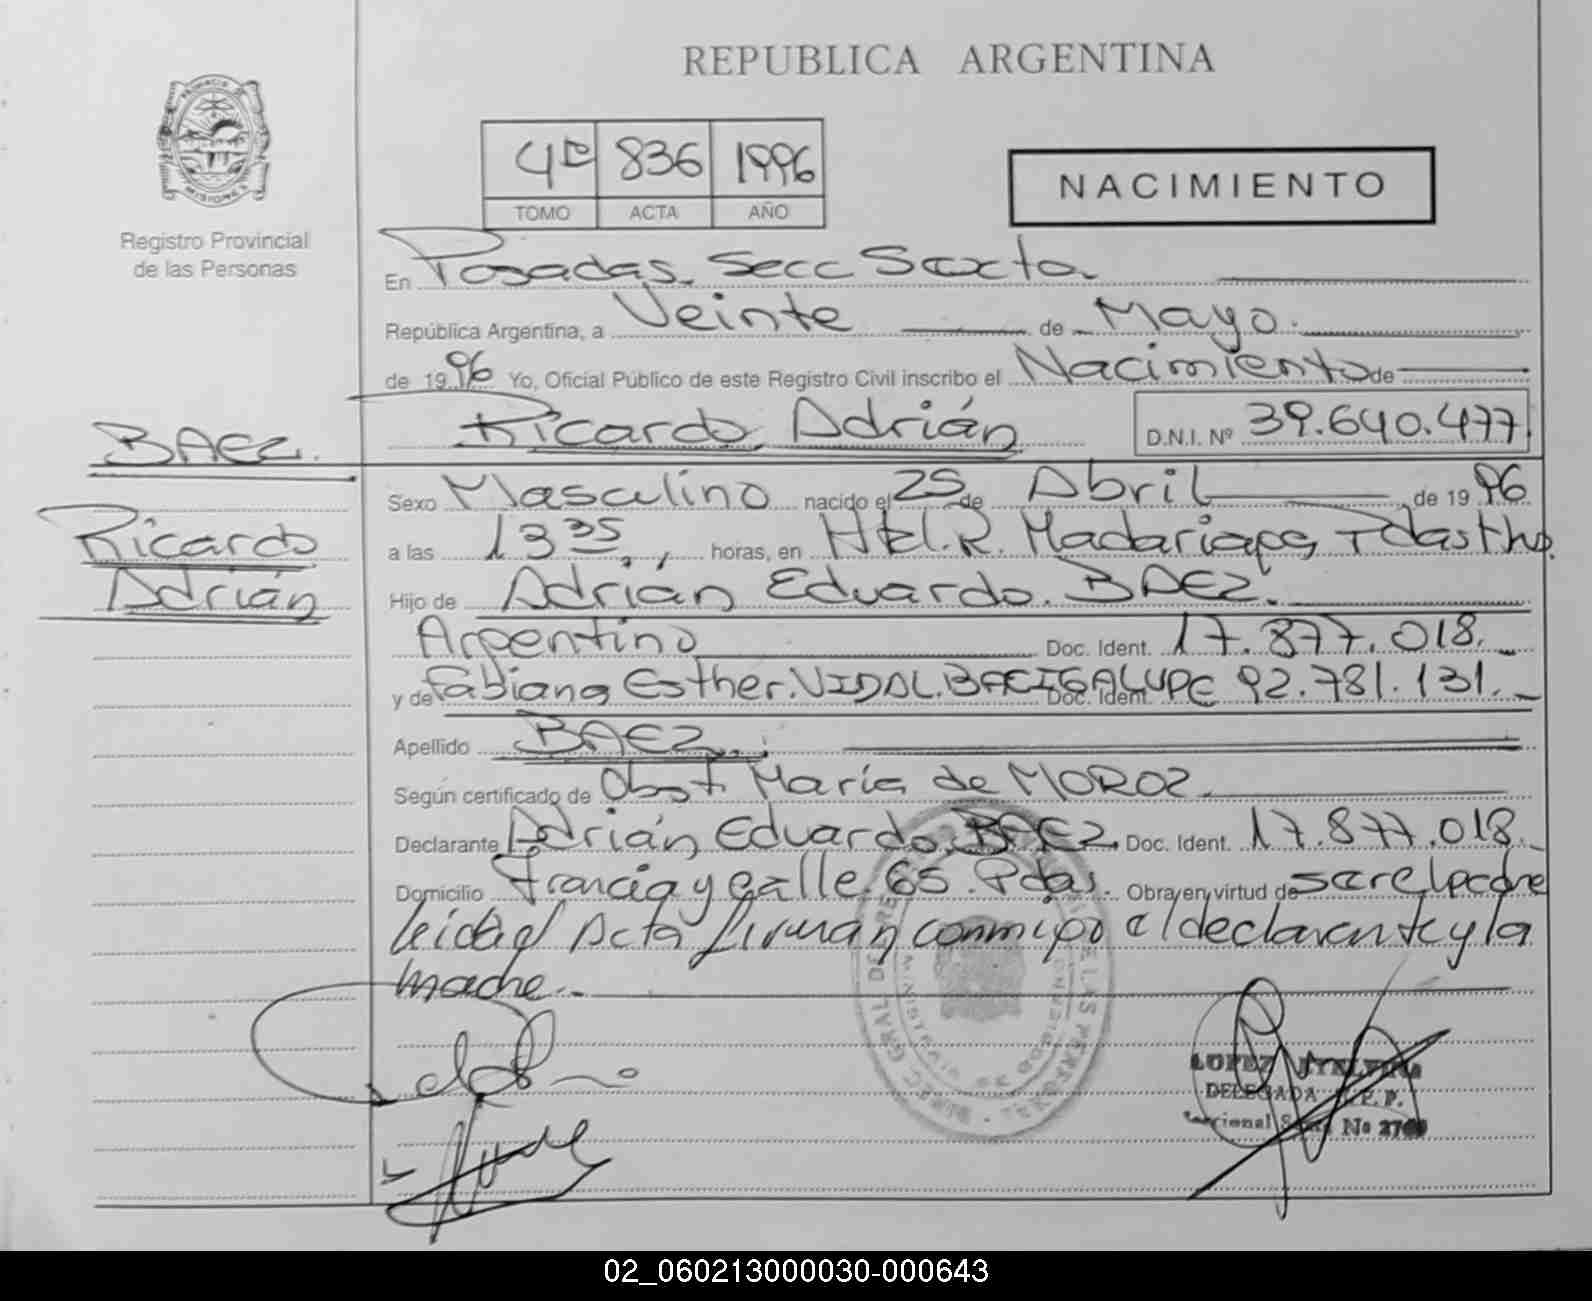 REPUBLICA ARGENTINA
PROVINCIA DE MISIONES
Registro Provincial
de las Personas
4º 836 1996
TOMO ACTA AÑO
NACIMIENTO
En Posadas. Secc Sexta.
República Argentina, a Veinte de Mayo.
de 1996 Yo, Oficial Público de este Registro Civil inscribo el Nacimiento de
Ricardo Adrián D.N.I. Nº 39.640.477
BAEZ.
Ricardo
Adrián
Sexo Masculino nacido el 25 de Abril de 1996
a las 13 35 horas, en Htal. R. Madariaga, Pdas
Hijo de Adrián Eduardo. BAEZ.
Argentino Doc. Ident. 17.877.018.
y de Fabiana Esther. VIDAL. BACIGALUPE Doc. Ident. 92.781.131.
Apellido BAEZ.
Según certificado de Obst. María de MOROZ.
Declarante Adrián Eduardo. BAEZ. Doc. Ident. 17.877.018.
Domicilio Francia y calle 65. Pdas. Obra en virtud de ser el padre
leida el Acta firman conmigo el declarante y la
madre.
LOPEZ
DELEGADA R.P.P.
Seccional
02_060213000030-000643